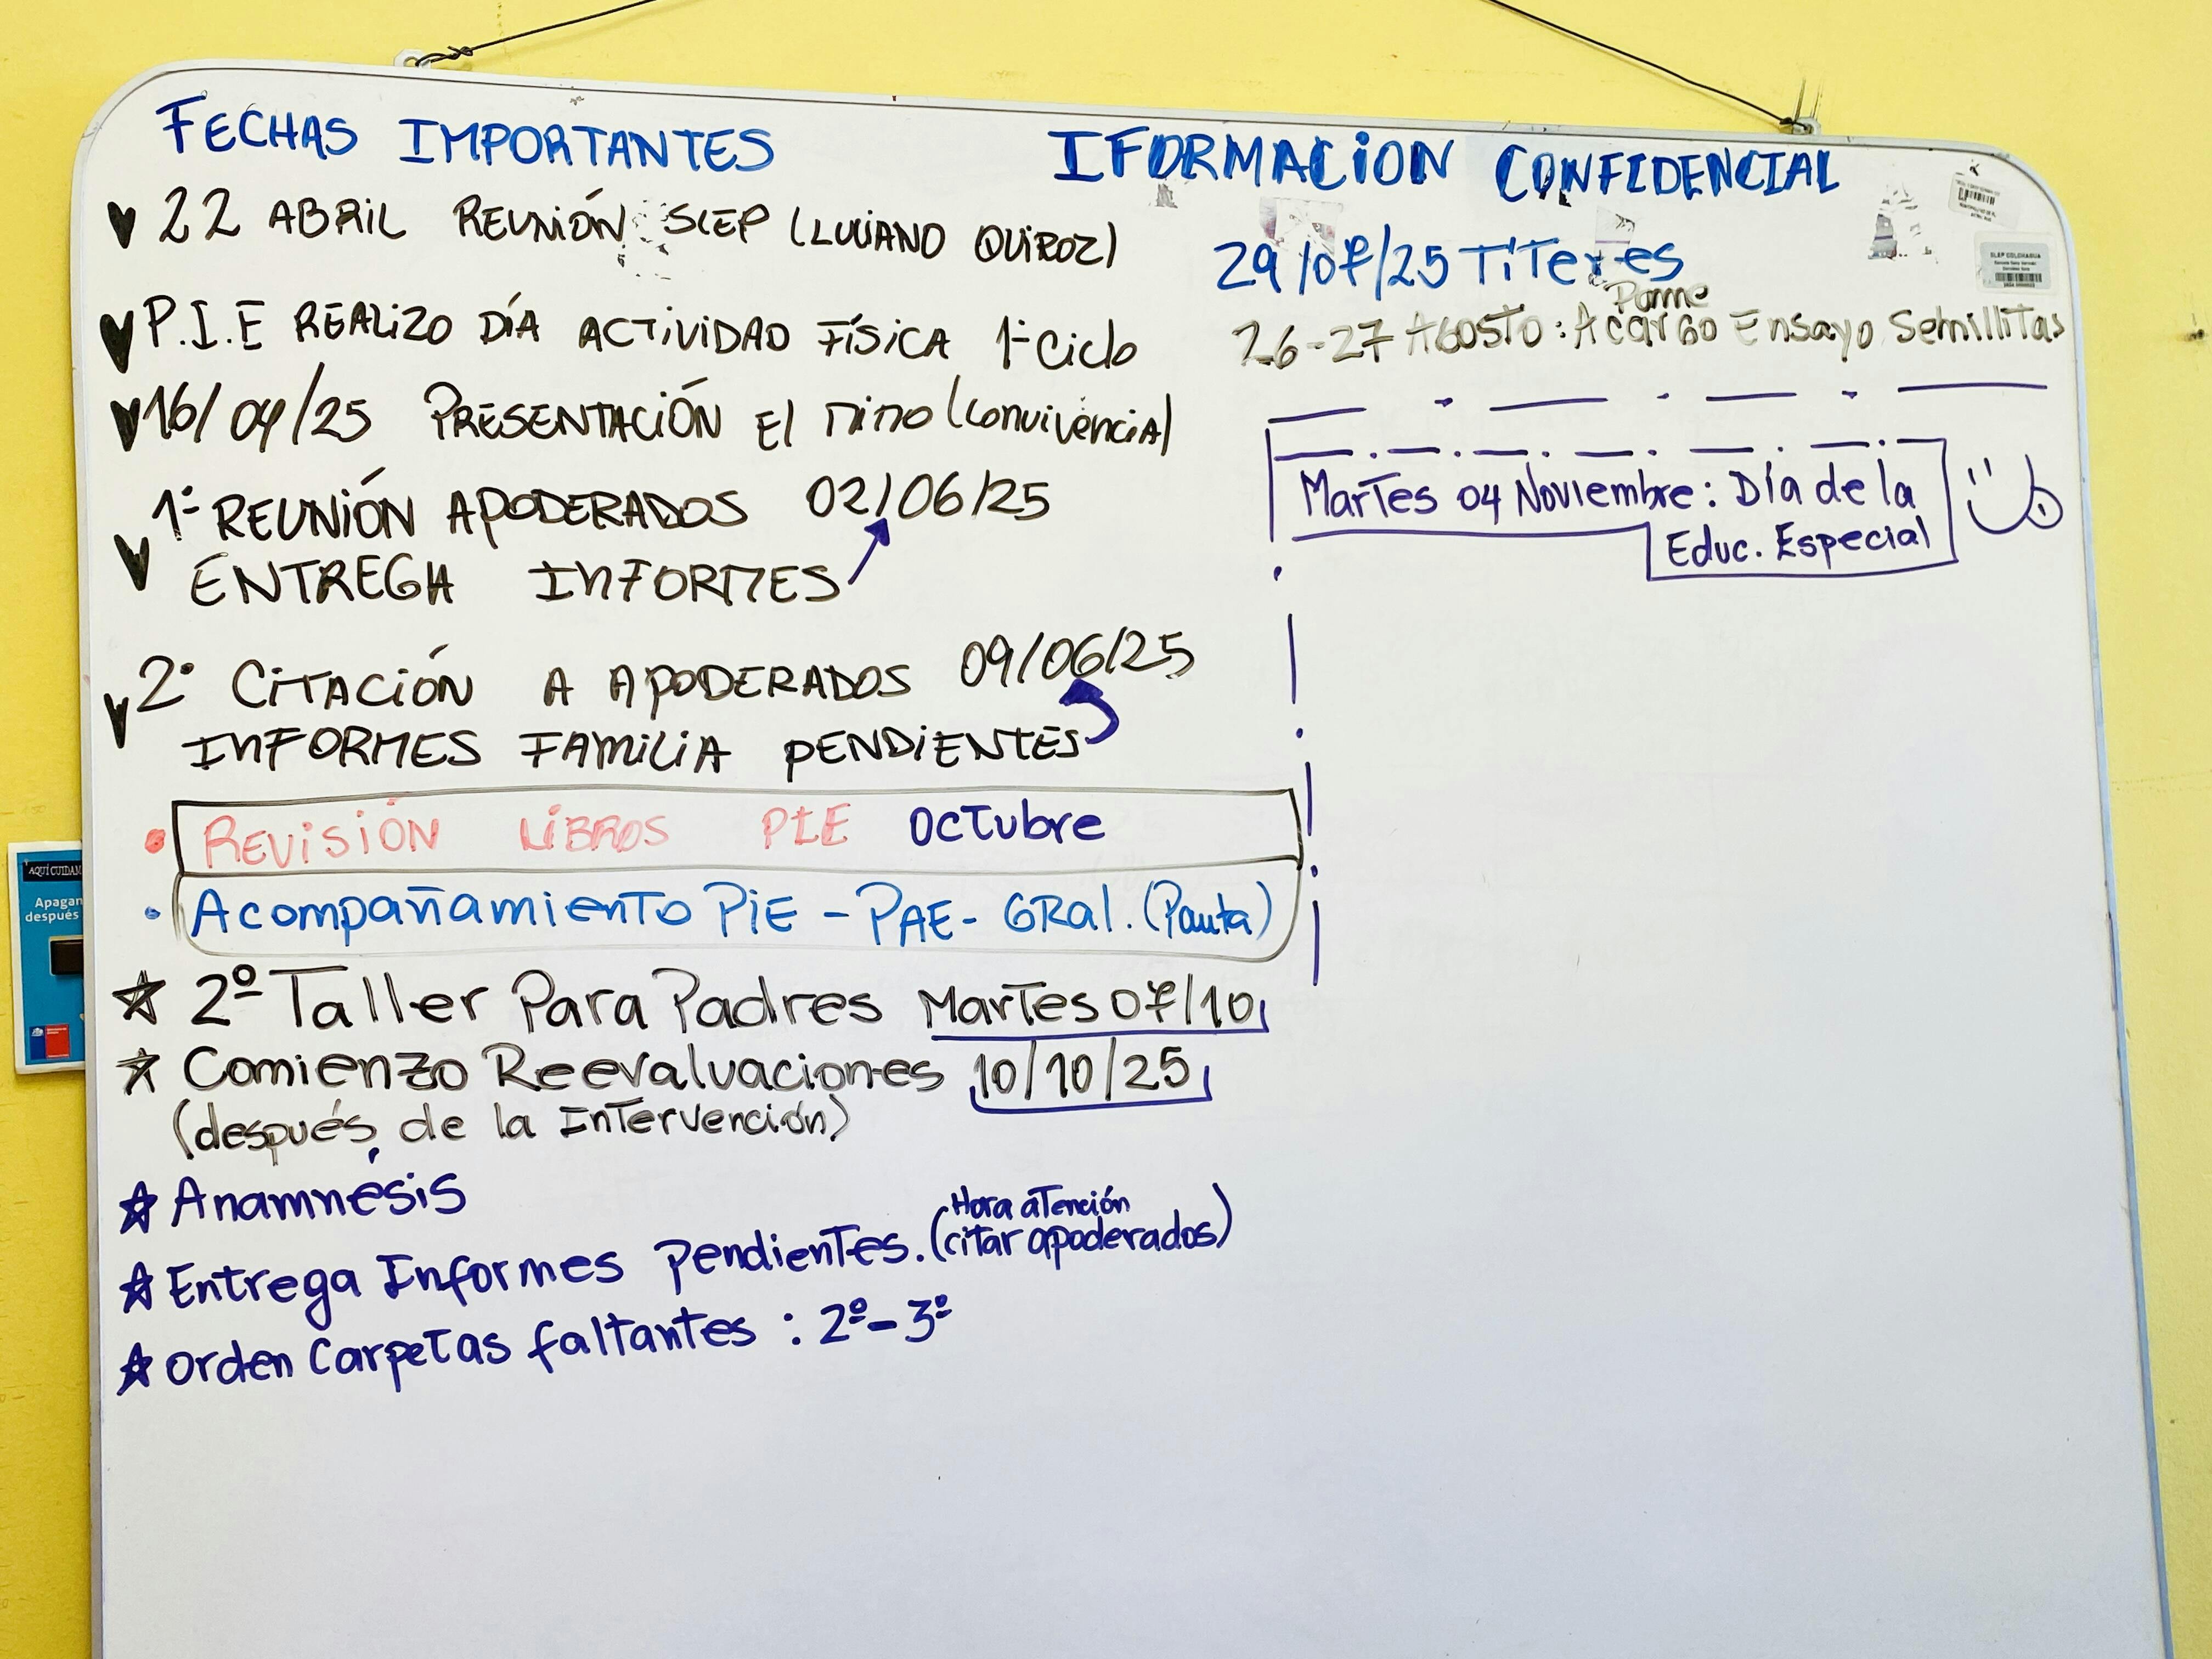 FECHAS IMPORTANTES
22 ABRIL REUNIÓN SLEP (LUCIANO QUIROZ)
P.I.E REALIZO DÍA ACTIVIDAD FÍSICA 1° Ciclo
16/04/25 PRESENTACIÓN El mimo (convivencia)
1° REUNIÓN APODERADOS 02/06/25
ENTREGA INFORMES
2° CITACIÓN A APODERADOS 09/06/25
INFORMES FAMILIA PENDIENTES
• REVISIÓN LIBROS PIE OCTubre
• Acompañamiento PiE - PAE - GRal. (Pauta)
☆ 2º Taller Para Padres Martes 07/10
☆ Comienzo Reevaluaciones 10/10/25
(después de la Intervención)
☆ Anamnésis
Hora atención
☆ Entrega Informes pendientes. (citar apoderados)
☆ Orden Carpetas faltantes : 2º - 3º
IFORMACION CONFIDENCIAL
29/07/25 TíTeres
Pame
26-27 Agosto: A cargo Ensayo Semillitas
Martes 04 Noviembre: Día de la
Educ. Especial
SLEP COLCHAGUA
AQUÍ CUIDAM
Apagan
después